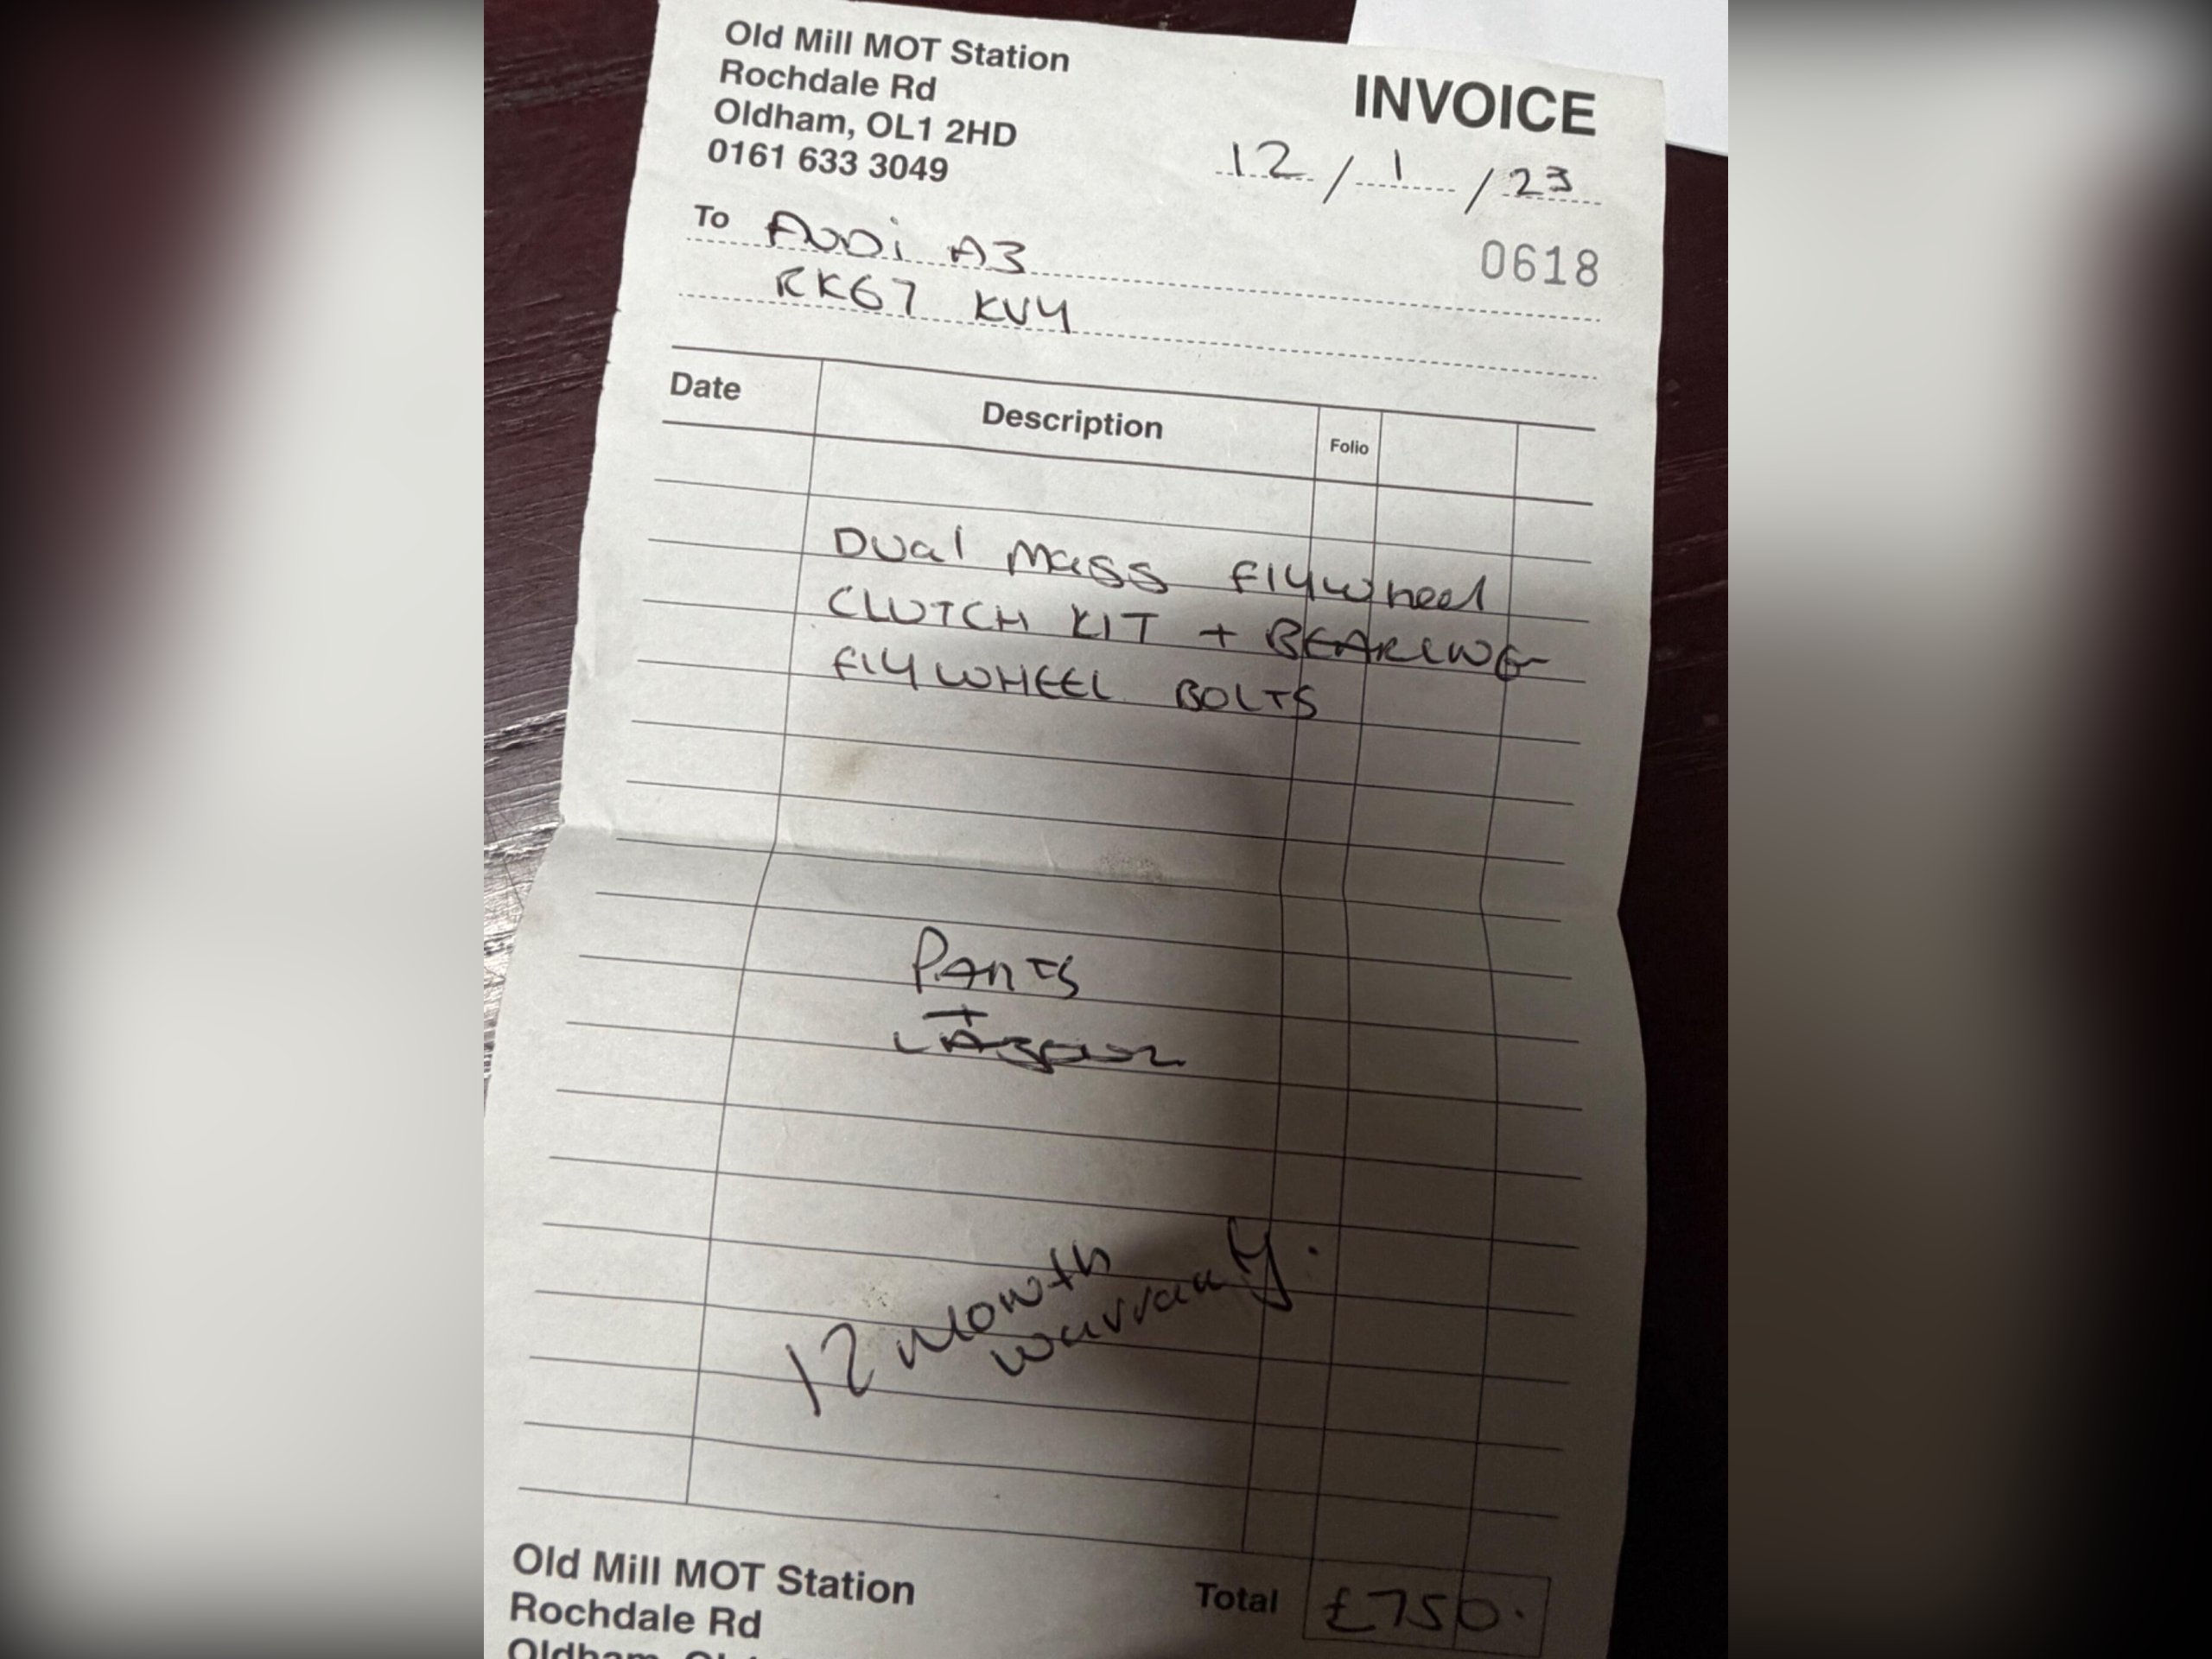 Old Mill MOT Station
Rochdale Rd
Oldham, OL1 2HD
0161 633 3049
INVOICE
12 / 1 / 23
To AUDi A3
0618
RK67 KVY
Date Description Folio
Dual Mass Flywheel
CLUTCH KIT + BEARING
FlYWHEEL BOLTS
PARTS
+
LABOUR
12 Month
warranty.
Total £750.
Old Mill MOT Station
Rochdale Rd